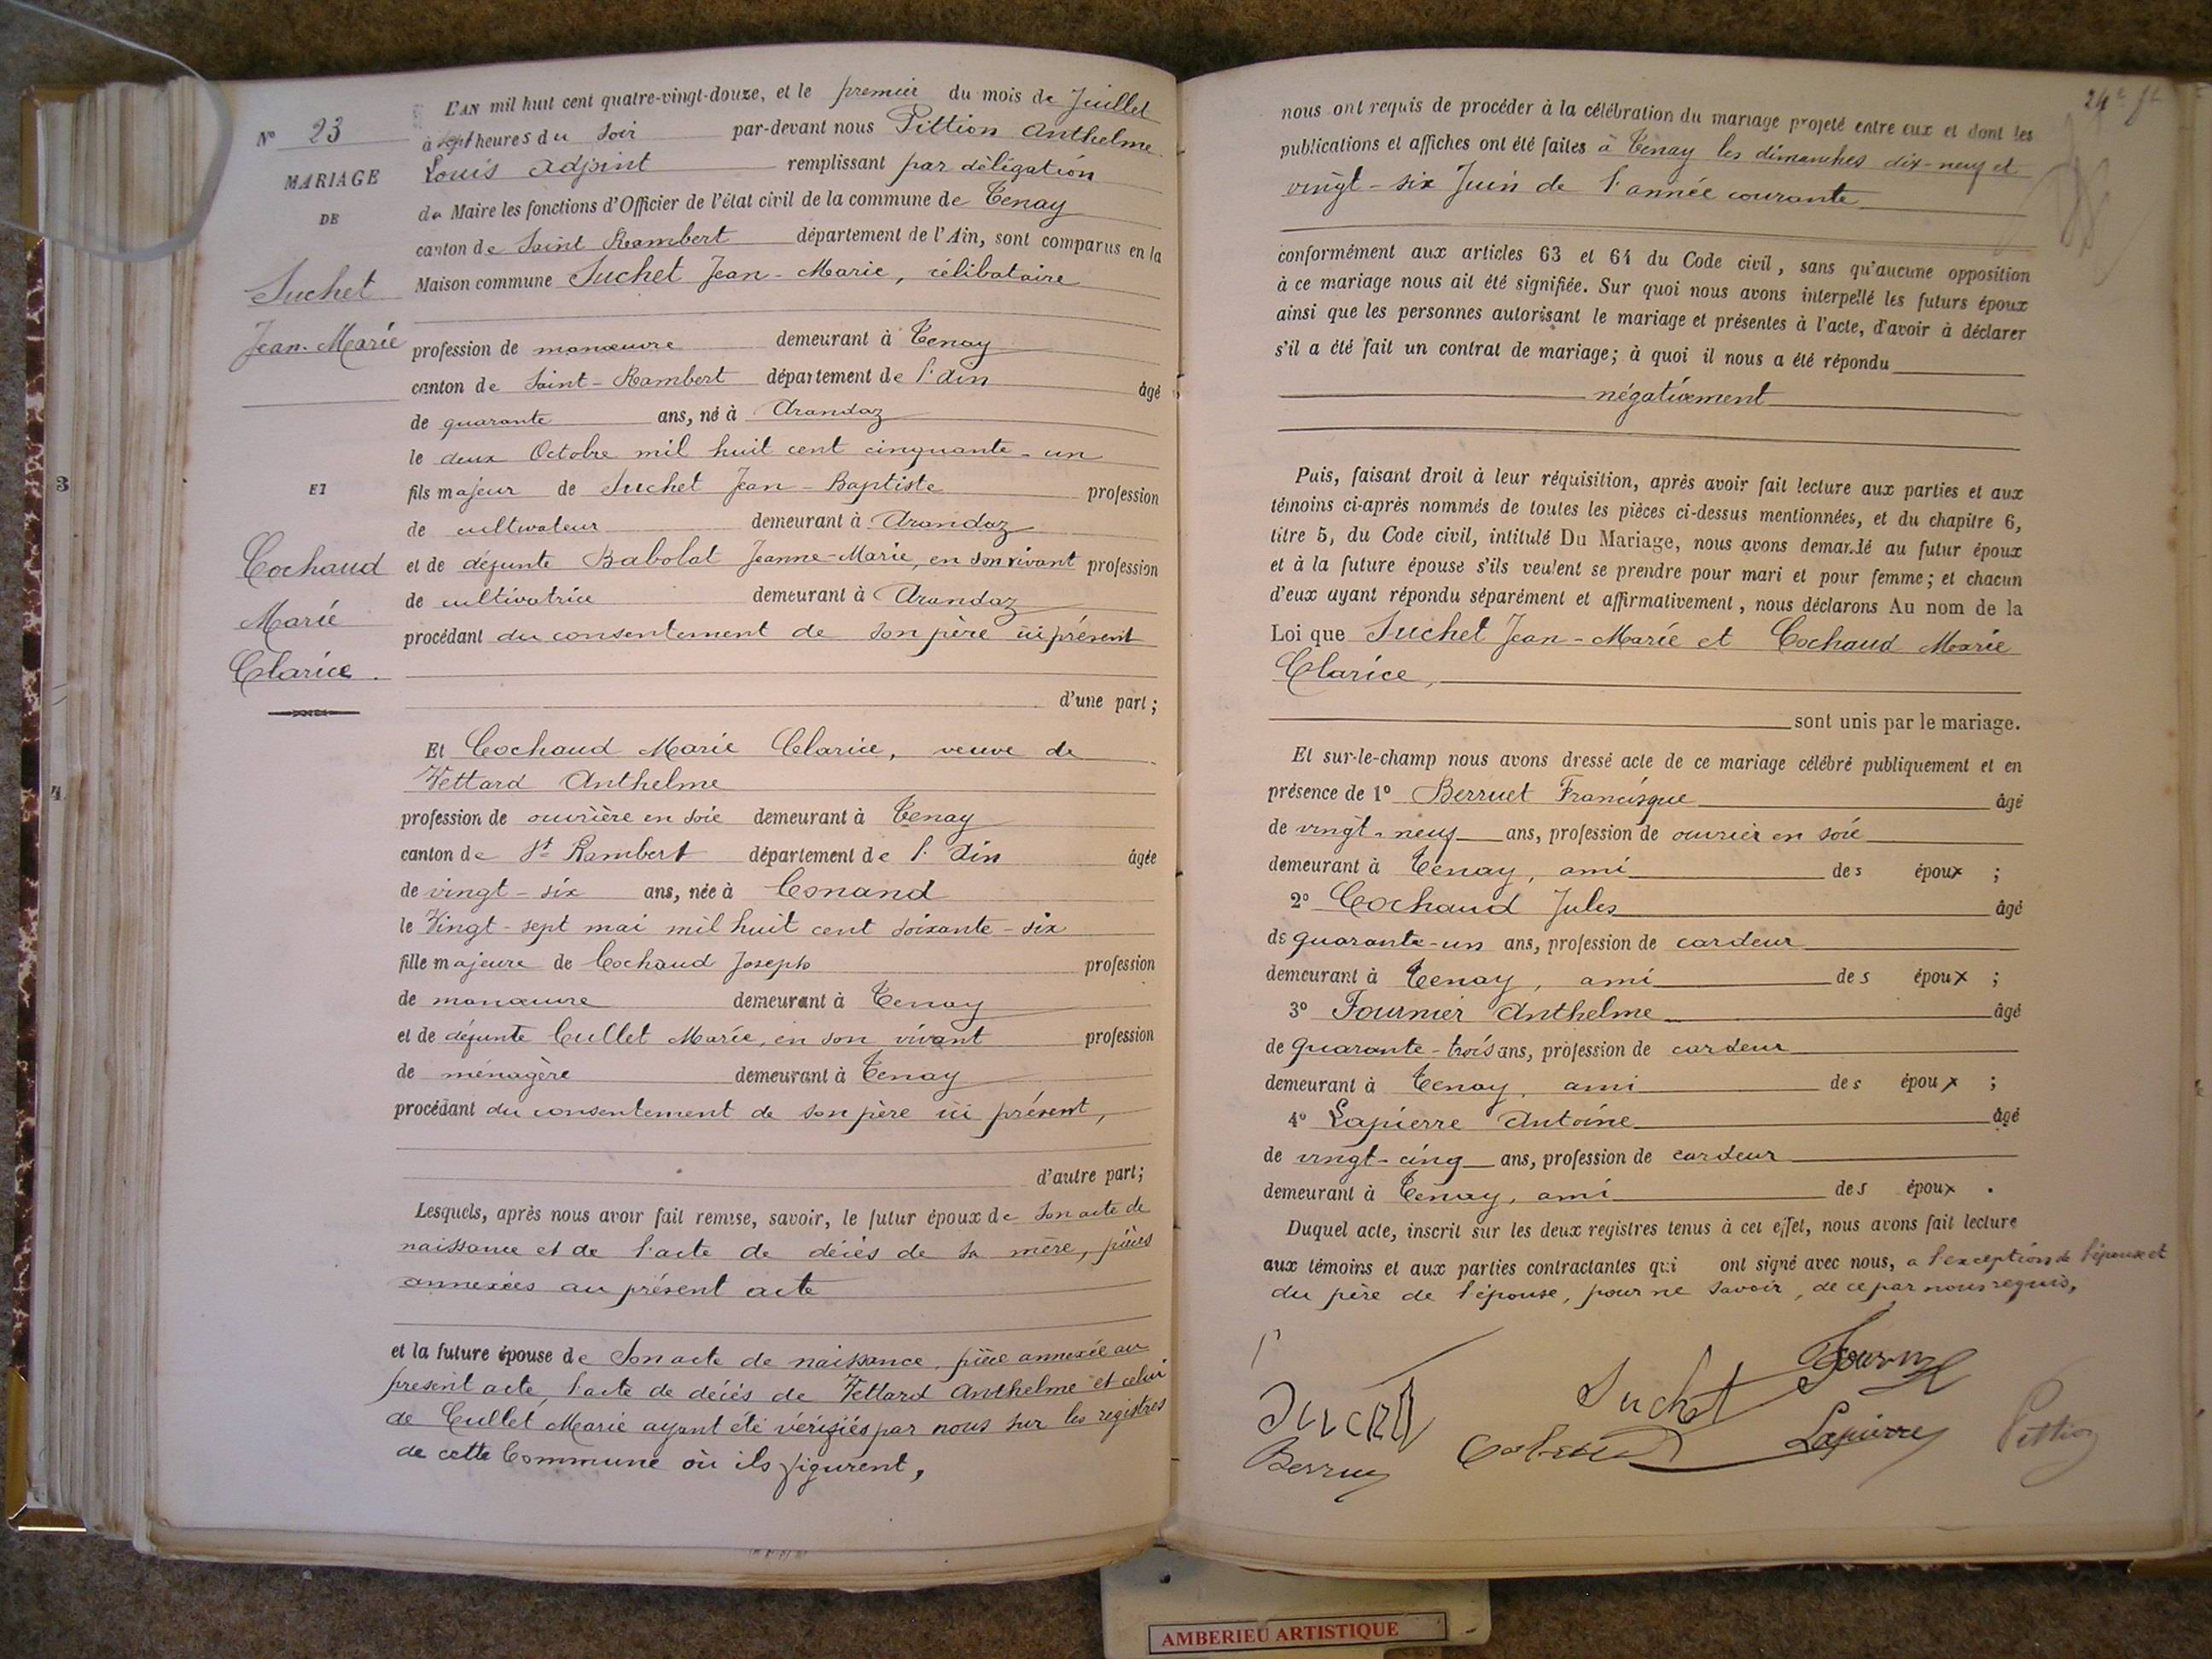 L'AN mil huit cent quatre-vingt-douze, et le premier du mois de Juillet
N° 23
à sept heures du soir par-devant nous Pittion Anthelme
MARIAGE
Louis adjoint remplissant par délégation
DE
du Maire les fonctions d'Officier de l'état civil de la commune de Tenay
canton de Saint Rambert département de l'Ain, sont comparus en la
Suchet
Maison commune Suchet Jean-Marie, célibataire
Jean-Marie
profession de manœuvre demeurant à Tenay
canton de Saint-Rambert département de l'Ain âgé
de quarante ans, né à Arandaz
le deux Octobre mil huit cent cinquante-un
ET
fils majeur de Suchet Jean-Baptiste profession
de cultivateur demeurant à Arandaz
Cochaud
et de défunte Babolat Jeanne-Marie, en son vivant profession
de cultivatrice demeurant à Arandaz
Marie
procédant du consentement de son père ici présent
Clarice.
d'une part;
Et Cochaud Marie Clarice, veuve de
Vettard Anthelme
profession de ouvrière en soie demeurant à Tenay
canton de St Rambert département de l'Ain âgée
de vingt-six ans, née à Conand
le Vingt-sept mai mil huit cent soixante-six
fille majeure de Cochaud Joseph profession
de manœuvre demeurant à Tenay
et de défunte Cullet Marie, en son vivant profession
de ménagère demeurant à Tenay
procédant du consentement de son père ici présent,
d'autre part;
Lesquels, après nous avoir fait remise, savoir, le futur époux de son acte de
naissance et de l'acte de décès de sa mère, pièces
annexées au présent acte
et la future épouse de son acte de naissance, pièce annexée au
present acte, l'acte de décès de Vettard Anthelme et celui
de Cullet Marie ayant été vérifiés par nous sur les registres
de cette Commune où ils figurent,
3
4
24e
nous ont requis de procéder à la célébration du mariage projeté entre eux et dont les
publications et affiches ont été faites à Tenay les dimanches dix-neuf et
vingt-six Juin de l'année courante
conformément aux articles 63 et 64 du Code civil, sans qu'aucune opposition
à ce mariage nous ait été signifiée. Sur quoi nous avons interpellé les futurs époux
ainsi que les personnes autorisant le mariage et présentes à l'acte, d'avoir à déclarer
s'il a été fait un contrat de mariage; à quoi il nous a été répondu
négativement
Puis, faisant droit à leur réquisition, après avoir fait lecture aux parties et aux
témoins ci-après nommés de toutes les pièces ci-dessus mentionnées, et du chapitre 6,
titre 5, du Code civil, intitulé Du Mariage, nous avons demandé au futur époux
et à la future épouse s'ils veulent se prendre pour mari et pour femme; et chacun
d'eux ayant répondu séparément et affirmativement, nous déclarons Au nom de la
Loi que Suchet Jean-Marie et Cochaud Marie
Clarice,
sont unis par le mariage.
Et sur-le-champ nous avons dressé acte de ce mariage célébré publiquement et en
présence de 1° Berruet Francisque âgé
de vingt-neuf ans, profession de ouvrier en soie
demeurant à Tenay, ami des époux ;
2° Cochaud Jules âgé
de quarante-un ans, profession de cardeur
demeurant à Tenay, ami des époux ;
3° Fournier Anthelme âgé
de quarante-trois ans, profession de cardeur
demeurant à Tenay, ami des époux ;
4° Lapierre Antoine âgé
de vingt-cinq ans, profession de cardeur
demeurant à Tenay, ami des époux .
Duquel acte, inscrit sur les deux registres tenus à cet effet, nous avons fait lecture
aux témoins et aux parties contractantes qui ont signé avec nous, a l'exception de l'épouse et
du père de l'épouse, pour ne savoir, de ce par nous requis,
Suchet
Lapierre Pittion
AMBERIEU ARTISTIQUE